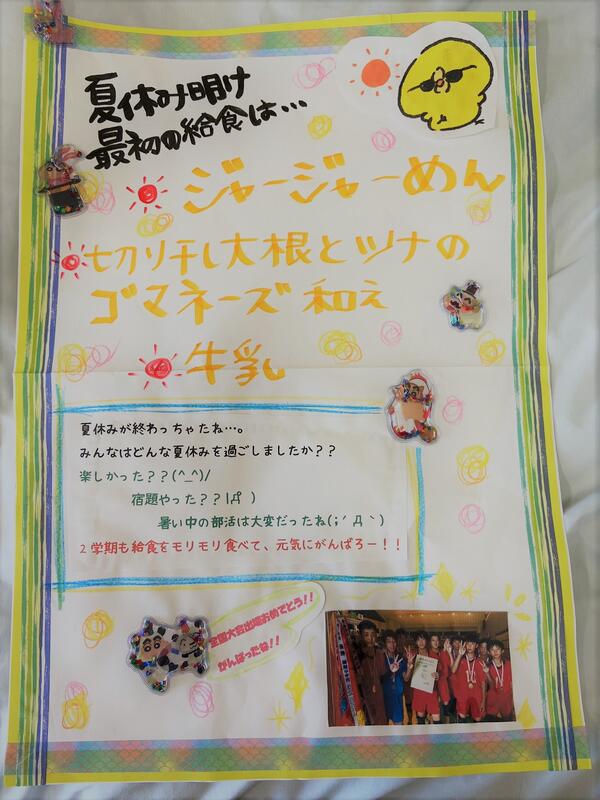 夏休み明け
最初の給食は…
ジャージャーめん
切り干し大根とツナの
ゴマネーズ和え
牛乳
夏休みが終わっちゃたね…。
みんなはどんな夏休みを過ごしましたか??
楽しかった??(^_^)/
宿題やった??|дﾟ)
暑い中の部活は大変だったね(;´Д｀)
2学期も給食をモリモリ食べて、元気にがんばろー!!
全国大会出場おめでとう!!
がんばったね!!